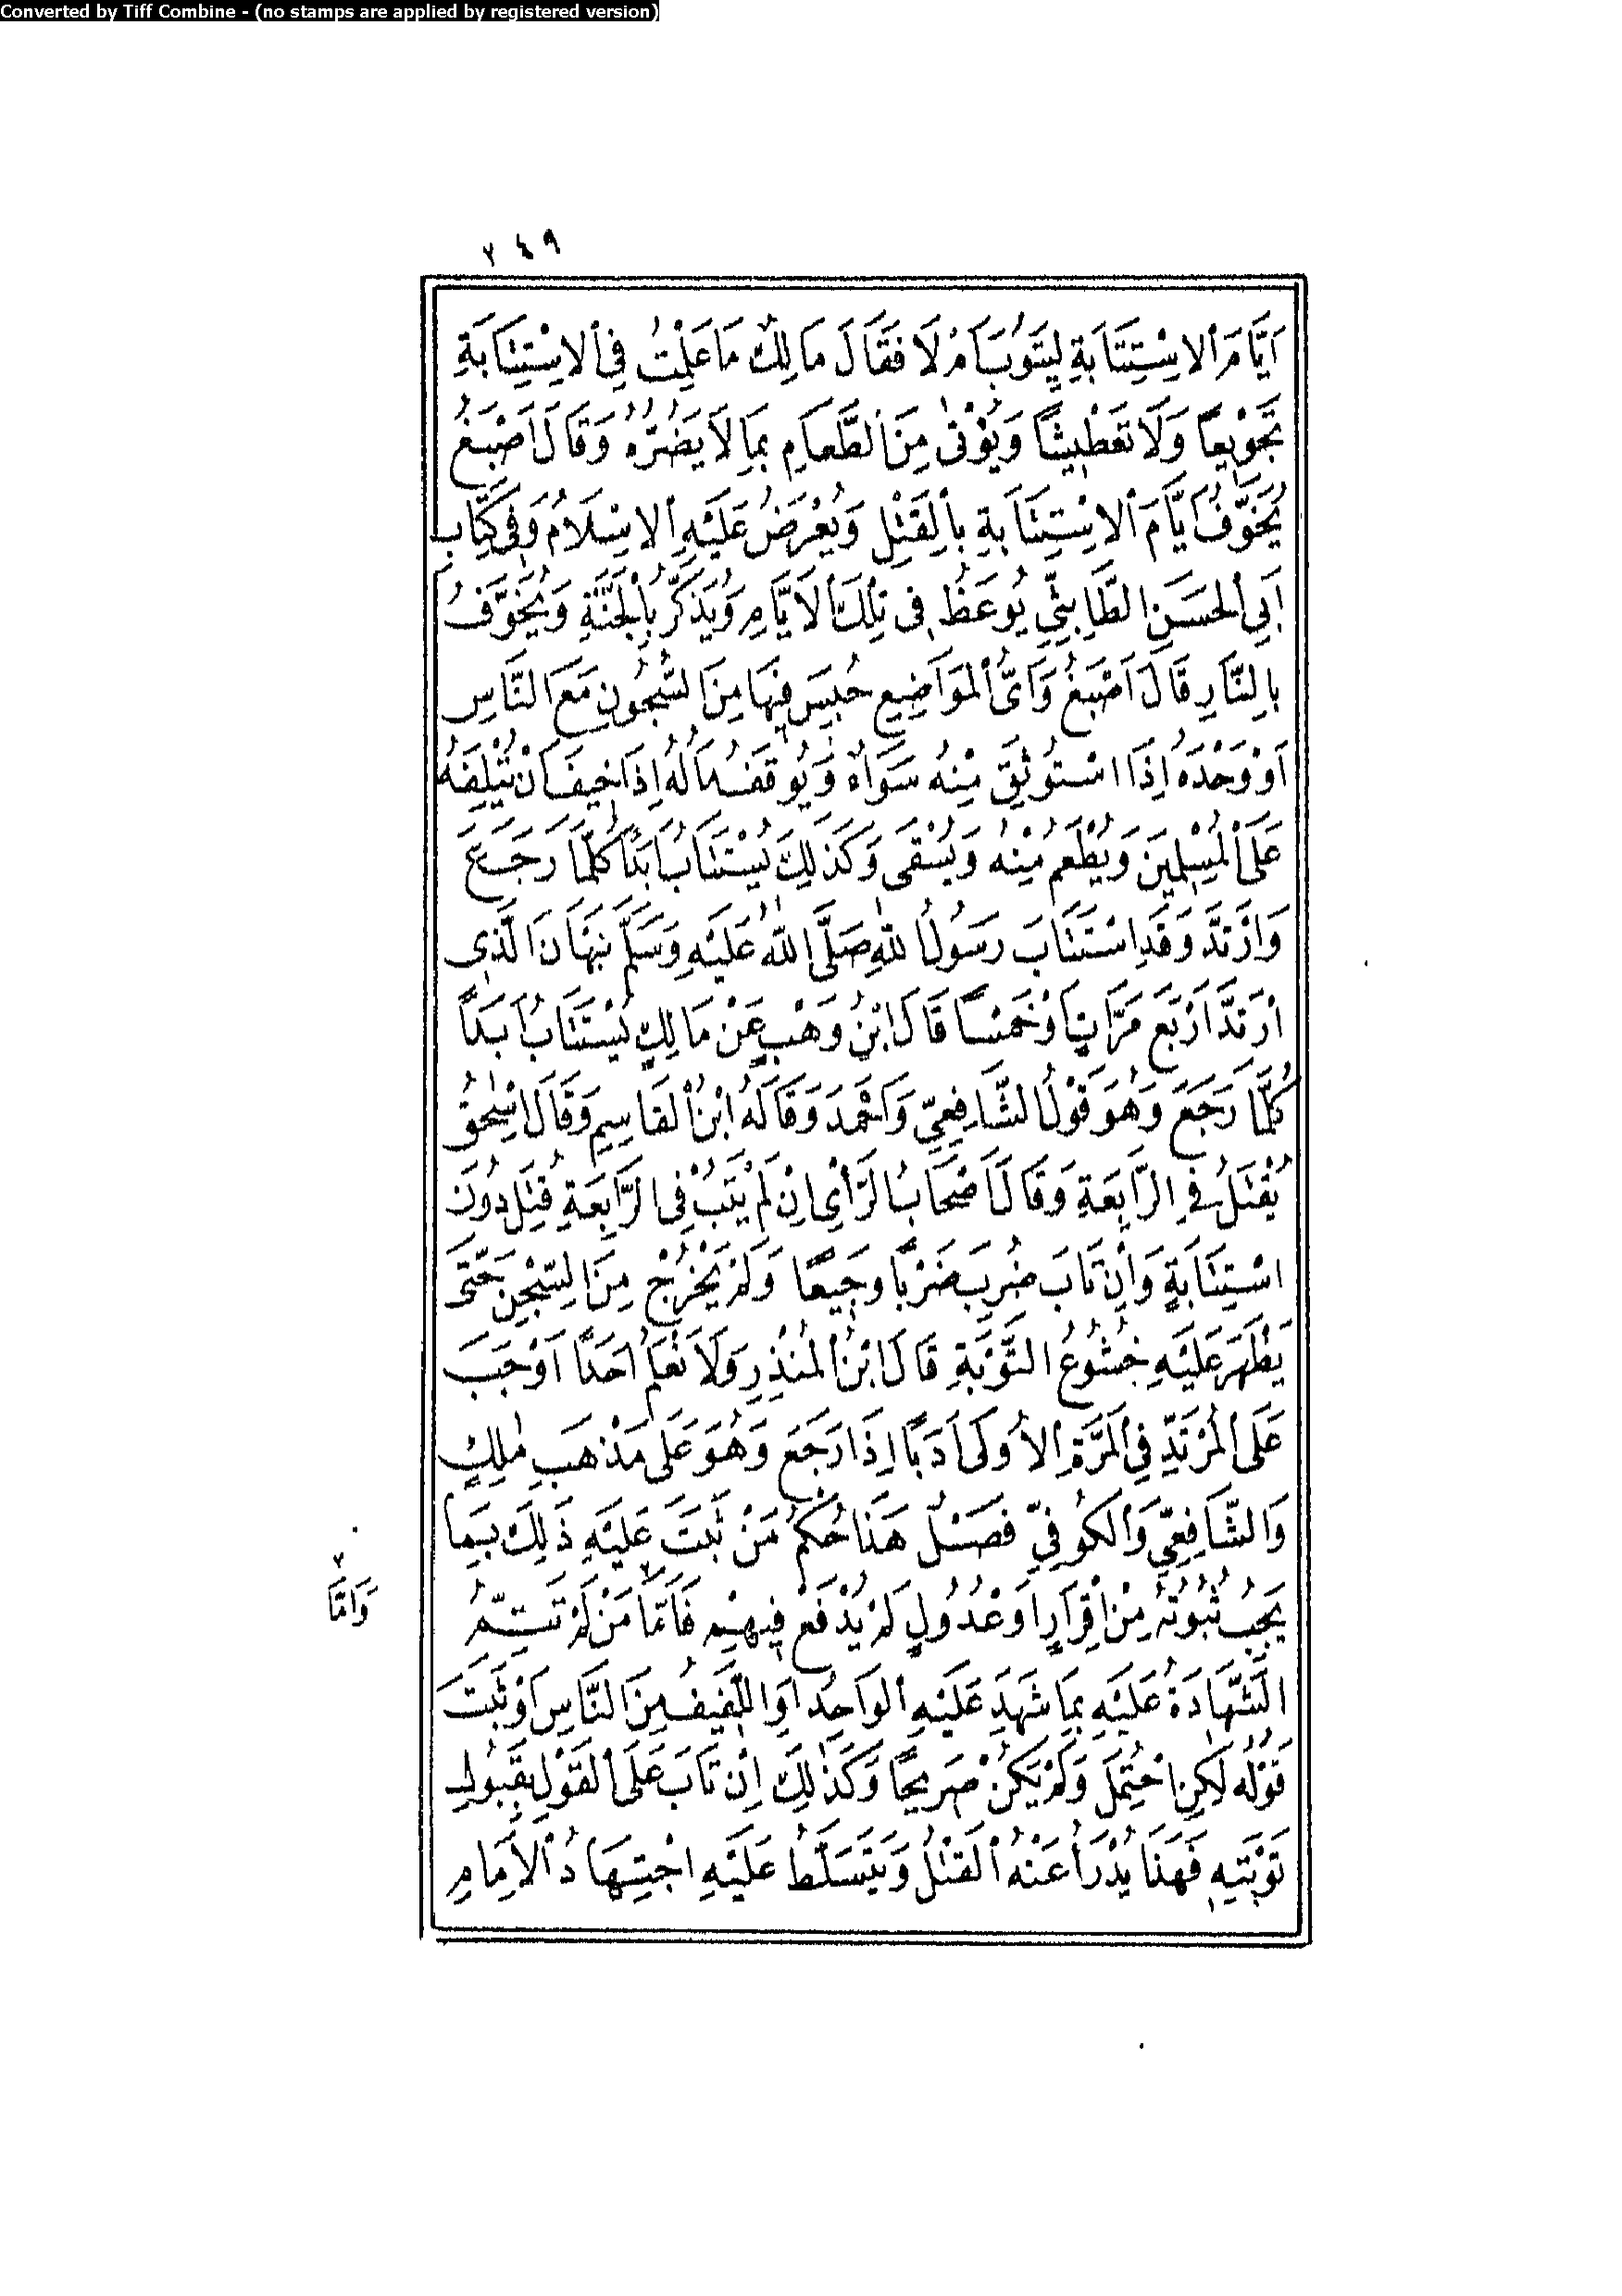 Converted by Tiff Combine - (no stamps are applied by registered version)
٢٤٩
اَيَّامَ الْاِسْتِتَابَةِ لِيَتُوبَ اَمْ لَا فَقَالَ مَالِكٌ مَا عَلِمْتُ فِي الْاِسْتِتَابَةِ
تَجْوِيعًا وَلَا تَعْطِيشًا وَيُؤْتٰى مِنَ الطَّعَامِ بِمَا لَا يَضُرُّهُ وَقَالَ اَصْبَغُ
يُخَوَّفُ اَيَّامَ الْاِسْتِتَابَةِ بِالْقَتْلِ وَيُعْرَضُ عَلَيْهِ الْاِسْلَامُ وَفِي كِتَابِ
اَبِي الْحَسَنِ الطَّابِثِيِّ يُوعَظُ فِي تِلْكَ الْاَيَّامِ وَيُذَكَّرُ بِالْجَنَّةِ وَيُخَوَّفُ
بِالنَّارِ قَالَ اَصْبَغُ وَاَيُّ الْمَوَاضِعِ حُبِسَ فِيهَا مِنَ السُّجُونِ مَعَ النَّاسِ
اَوْ وَحْدَهُ اِذَا اسْتُوثِقَ مِنْهُ سَوَاءٌ وَيُوقَفُ مَالُهُ اِذَا خِيفَ اَنْ يُتْلِفَهُ
عَلَى الْمُسْلِمِينَ وَيُطْعَمُ مِنْهُ وَيُسْقَى وَكَذٰلِكَ يُسْتَتَابُ اَبَدًا كُلَّمَا رَجَعَ
وَارْتَدَّ وَقَدِ اسْتَتَابَ رَسُولُ اللّٰهِ صَلَّى اللّٰهُ عَلَيْهِ وَسَلَّمَ نَبْهَانَ الَّذِي
ارْتَدَّ اَرْبَعَ مَرَّاتٍ اَوْ خَمْسًا قَالَ ابْنُ وَهْبٍ عَنْ مَالِكٍ يُسْتَتَابُ اَبَدًا
كُلَّمَا رَجَعَ وَهُوَ قَوْلُ الشَّافِعِيِّ وَاَحْمَدَ وَقَالَهُ ابْنُ الْقَاسِمِ وَقَالَ اِسْحٰقُ
يُقْتَلُ فِي الرَّابِعَةِ وَقَالَ اَصْحَابُ الرَّأْيِ اِنْ لَمْ يَتُبْ فِي الرَّابِعَةِ قُتِلَ دُونَ
اسْتِتَابَةٍ وَاِنْ تَابَ ضُرِبَ ضَرْبًا وَجِيعًا وَلَمْ يَخْرُجْ مِنَ السِّجْنِ حَتَّى
يَظْهَرَ عَلَيْهِ خُشُوعُ التَّوْبَةِ قَالَ ابْنُ الْمُنْذِرِ وَلَا نَعْلَمُ اَحَدًا اَوْجَبَ
عَلَى الْمُرْتَدِّ فِي الْمَرَّةِ الْاُولَى اَدَبًا اِذَا رَجَعَ وَهُوَ عَلَى مَذْهَبِ مٰلِكٍ
وَالشَّافِعِيِّ وَالْكُوفِيِّ فَصْلٌ هَذَا حُكْمُ مَنْ ثَبَتَ عَلَيْهِ ذَلِكَ بِمَا
يَجِبُ ثُبُوتُهُ مِنْ اِقْرَارٍ اَوْ عُدُولٍ لَمْ يُدْفَعْ فِيهِمْ فَاَمَّا مَنْ لَمْ تَتِمَّ
٢ وَاَمَّا
الشَّهَادَةُ عَلَيْهِ بِمَا شَهِدَ عَلَيْهِ الْوَاحِدُ اَوِ اللَّفِيفُ مِنَ النَّاسِ اَوْ ثَبَتَ
قَوْلُهُ لٰكِنِ احْتُمِلَ وَلَمْ يَكُنْ صَرِيحًا وَكَذٰلِكَ اِنْ تَابَ عَلَى الْقَوْلِ بِقَبُولِ
تَوْبَتِهِ فَهَذَا يُدْرَأُ عَنْهُ الْقَتْلُ وَيَتَسَلَّطُ عَلَيْهِ اجْتِهَادُ الْاِمَامِ